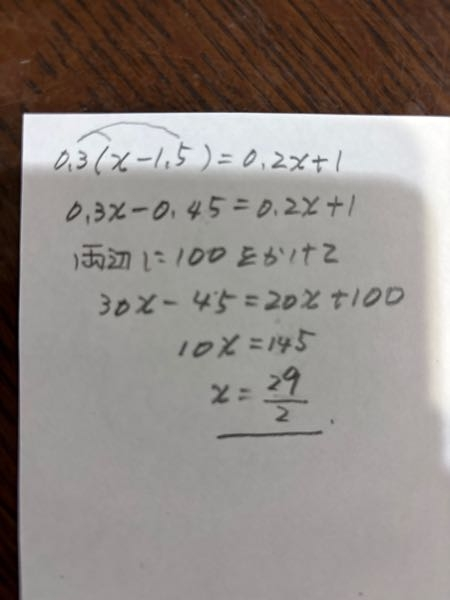 0.3(x-1.5)=0.2x+1
0.3x-0.45=0.2x+1
両辺に100をかけて
30x-45=20x+100
10x=145
x=29/2